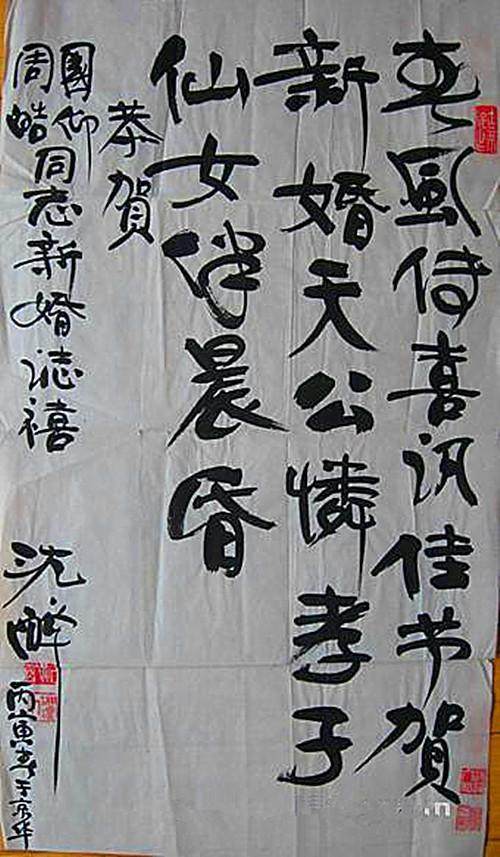 春風傳喜訊佳节賀
新婚天公憐孝子
仙女伴晨昏
恭賀
國仰
周皓同志新婚誌禧
沈醉
丙寅春于京华